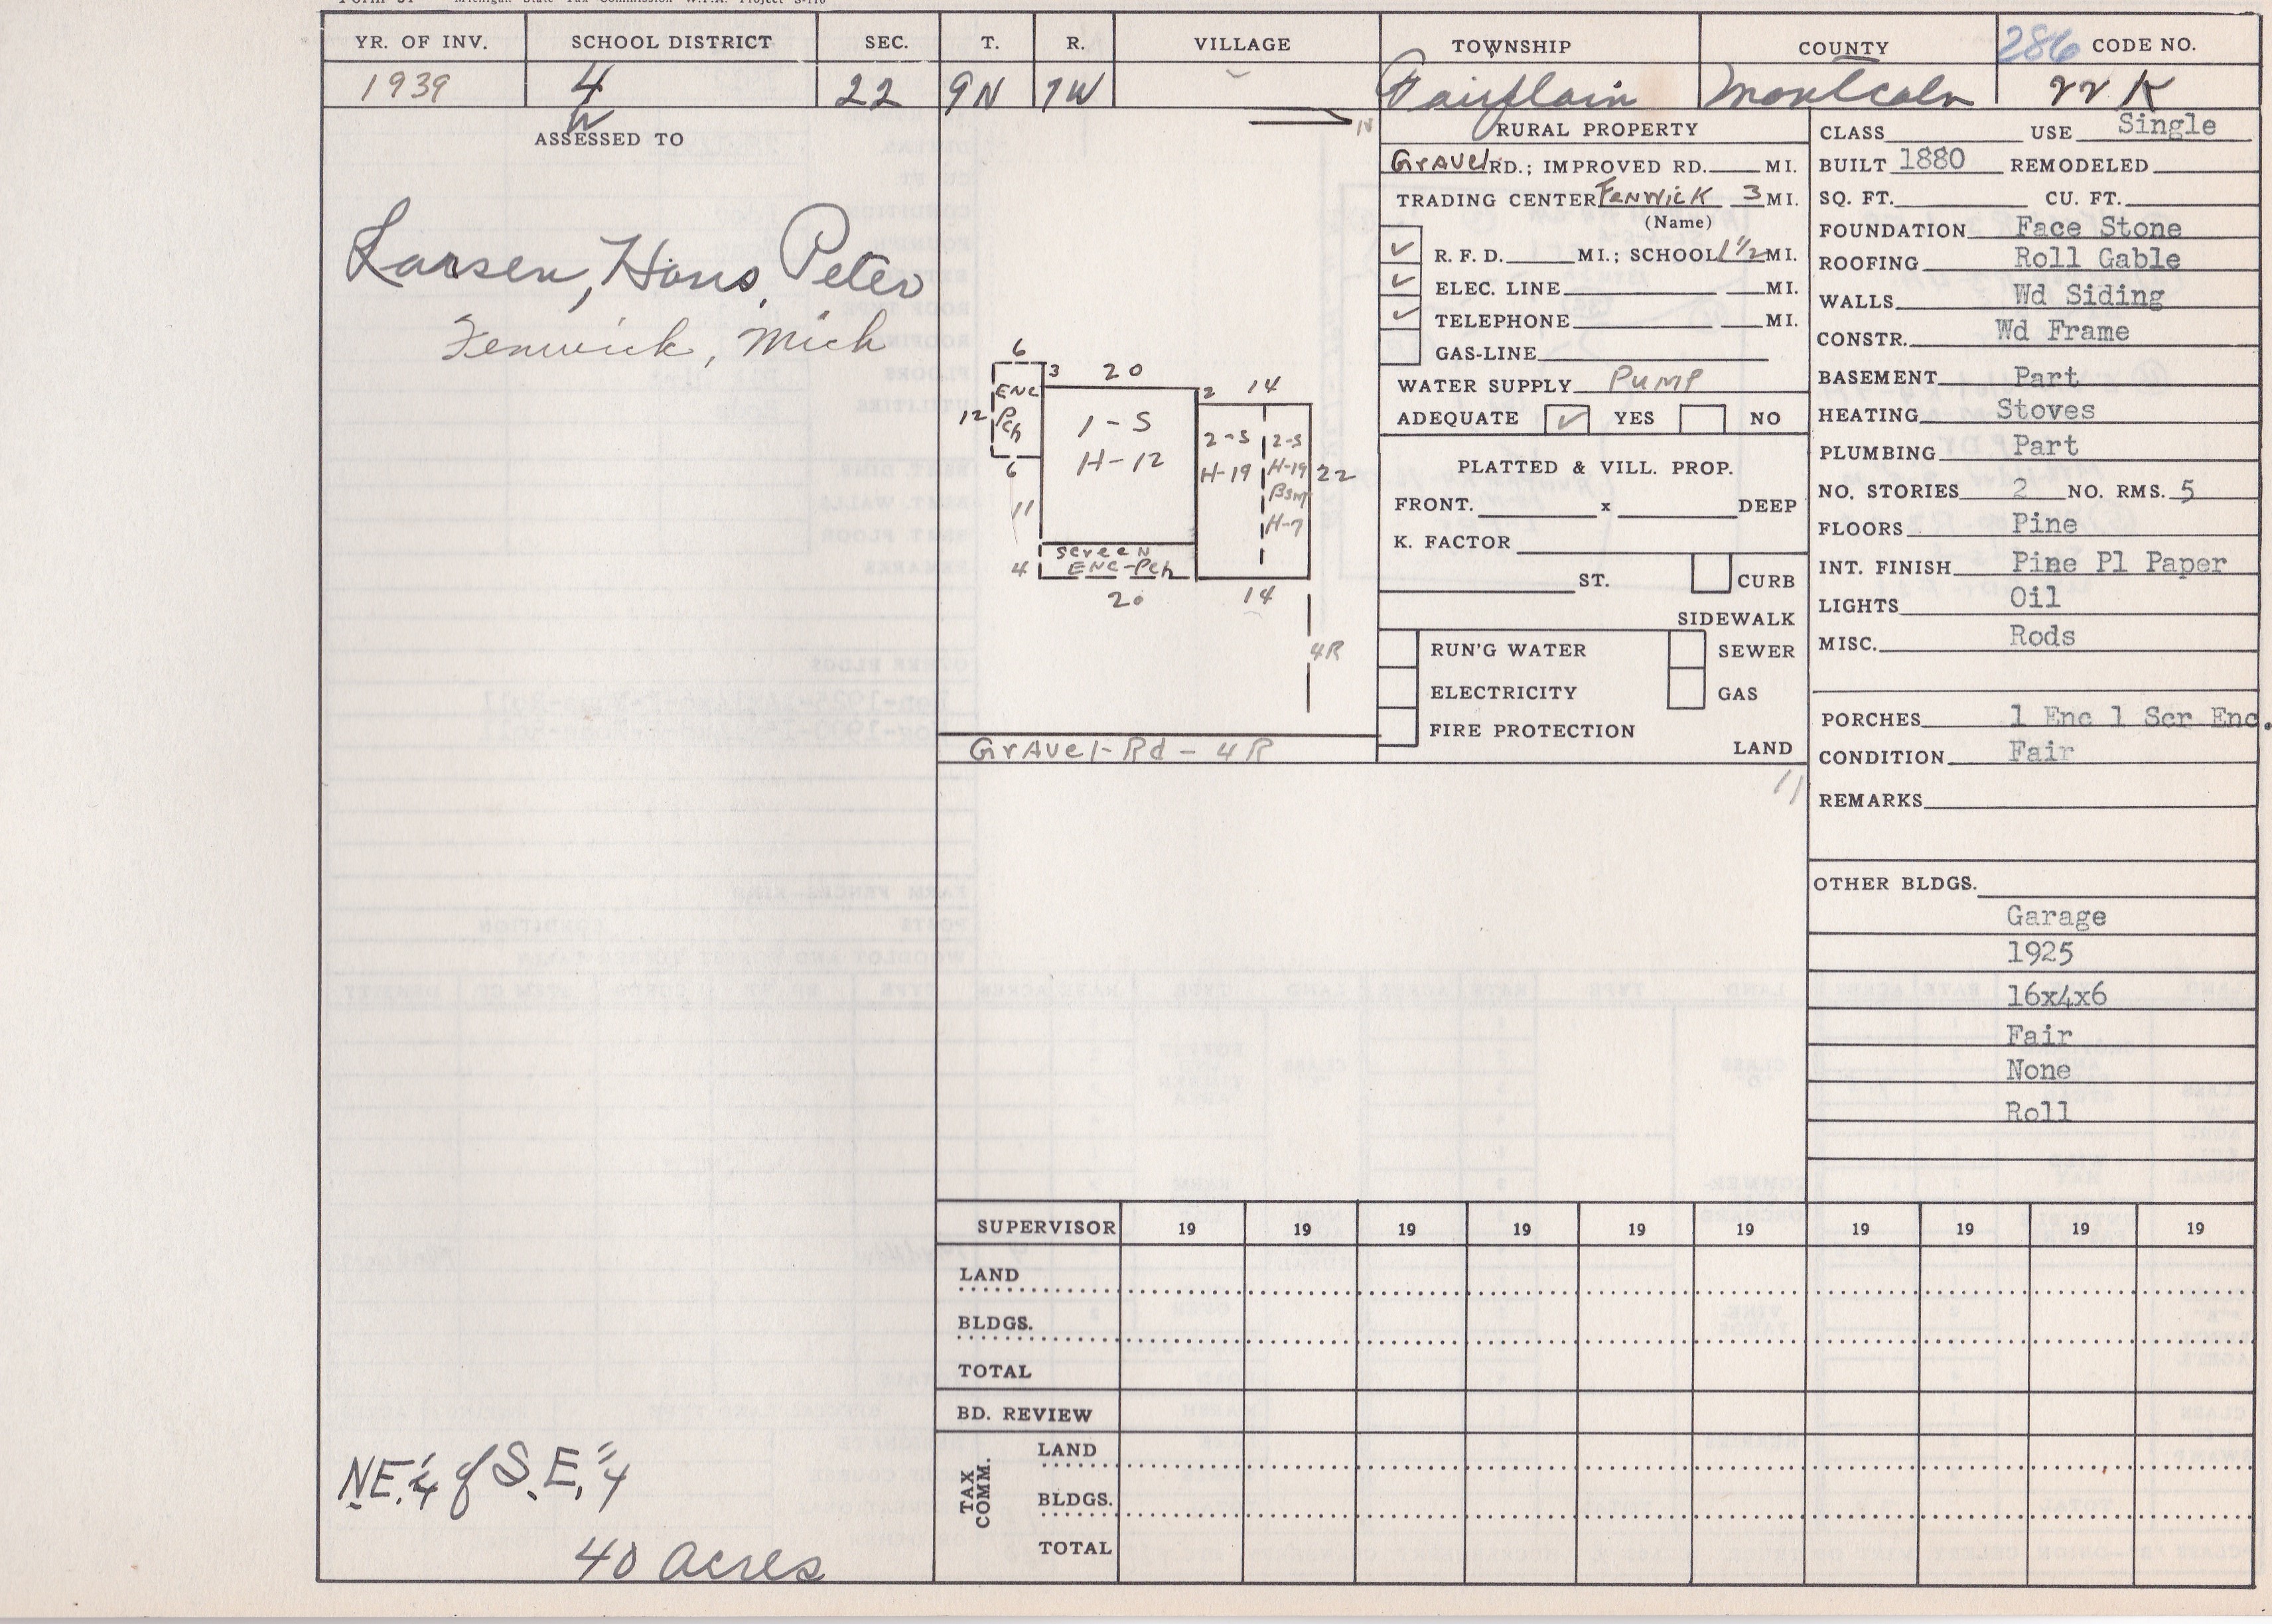 Form 51 Michigan State Tax Commission W.P.A. Project S-116
YR. OF INV. SCHOOL DISTRICT SEC. T. R. VILLAGE TOWNSHIP COUNTY 286 CODE NO.
1939 4 22 9N 7W Fairplain Montcalm 22 K
ASSESSED TO
Larsen, Hans, Peter
Fenwick, Mich
NE.¼ of S.E.¼
40 acres
N
6
3 20
2 14
ENC
Pch
12
6
1-S
H-12
2-S
H-19
2-S
H-19
Bsm
H-7
22
11
4
Screen
ENC-Pch
20
14
4R
Gravel-Rd-4R
RURAL PROPERTY
Gravel RD.; IMPROVED RD. MI.
TRADING CENTER Fenwick 3 MI.
(Name)
✓ R. F. D. MI.; SCHOOL 1½ MI.
✓ ELEC. LINE MI.
✓ TELEPHONE MI.
GAS-LINE
WATER SUPPLY Pump
ADEQUATE ✓ YES NO
PLATTED & VILL. PROP.
FRONT. x DEEP
K. FACTOR
ST. CURB
SIDEWALK
RUN'G WATER SEWER
ELECTRICITY GAS
FIRE PROTECTION
LAND
11
CLASS USE Single
BUILT 1880 REMODELED
SQ. FT. CU. FT.
FOUNDATION Face Stone
ROOFING Roll Gable
WALLS Wd Siding
CONSTR. Wd Frame
BASEMENT Part
HEATING Stoves
PLUMBING Part
NO. STORIES 2 NO. RMS. 5
FLOORS Pine
INT. FINISH Pine Pl Paper
LIGHTS Oil
MISC. Rods
PORCHES 1 Enc 1 Scr Enc.
CONDITION Fair
REMARKS
OTHER BLDGS.
Garage
1925
16x4x6
Fair
None
Roll
SUPERVISOR 19 19 19 19 19 19 19 19 19 19
LAND
BLDGS.
TOTAL
BD. REVIEW
TAX COMM.
LAND
BLDGS.
TOTAL